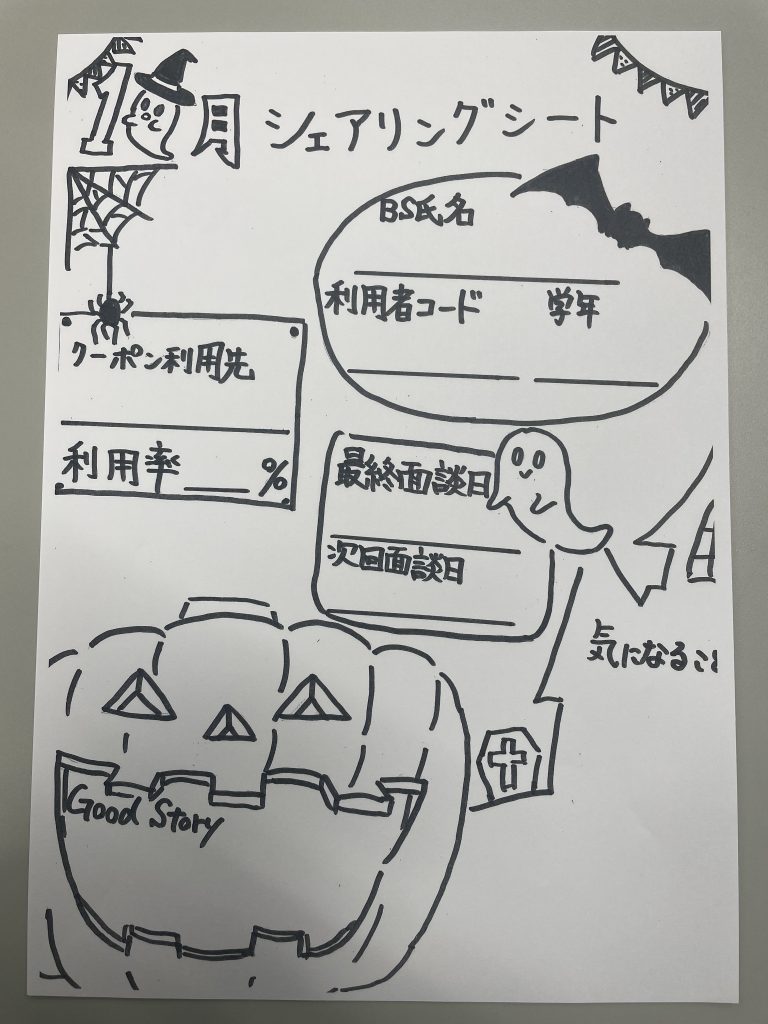 10月 シェアリングシート
BS氏名
利用者コード 学年
クーポン利用先
利用率 %
最終面談日
次回面談日
気になること
Good Story